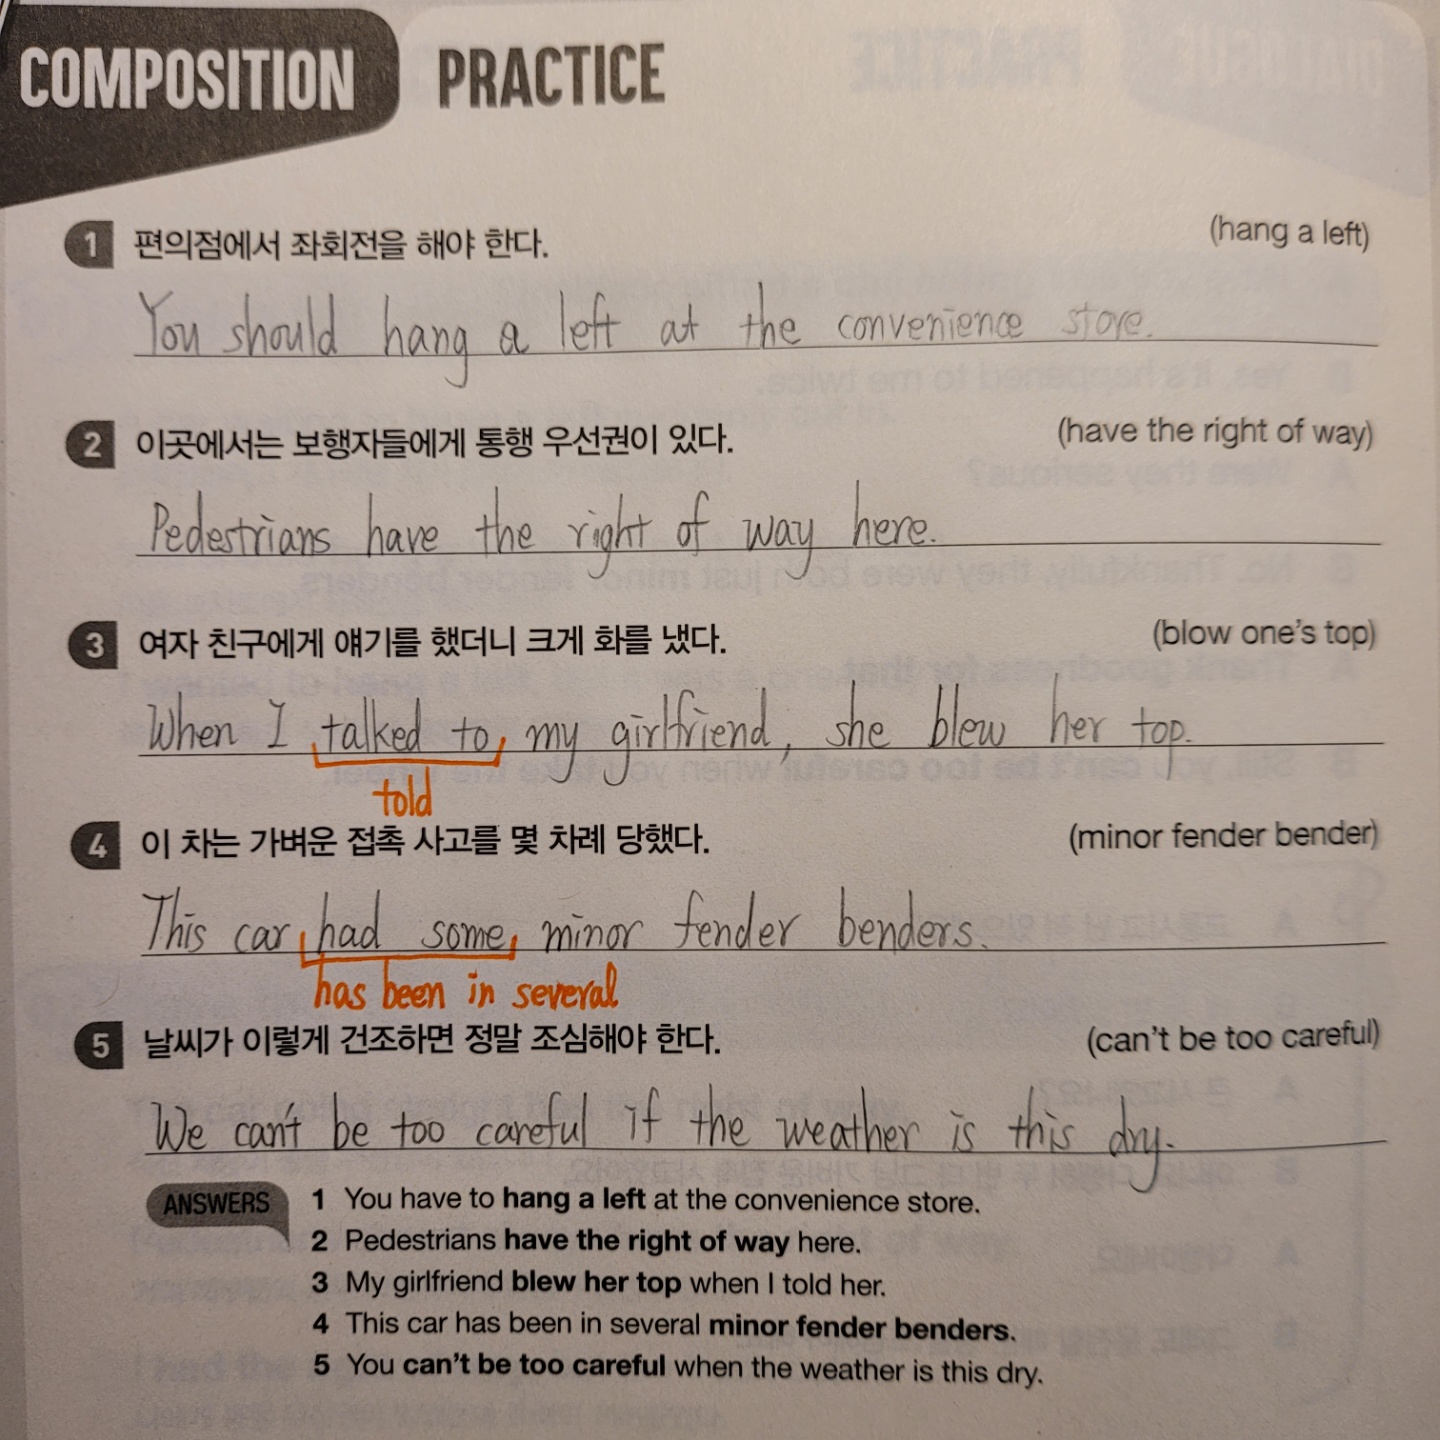 COMPOSITION PRACTICE
1 편의점에서 좌회전을 해야 한다. (hang a left)
You should hang a left at the convenience store.
2 이곳에서는 보행자들에게 통행 우선권이 있다. (have the right of way)
Pedestrians have the right of way here.
3 여자 친구에게 얘기를 했더니 크게 화를 냈다. (blow one's top)
When I talked to my girlfriend, she blew her top.
told
4 이 차는 가벼운 접촉 사고를 몇 차례 당했다. (minor fender bender)
This car had some minor fender benders.
has been in several
5 날씨가 이렇게 건조하면 정말 조심해야 한다. (can't be too careful)
We can't be too careful if the weather is this dry.
ANSWERS 1 You have to hang a left at the convenience store.
2 Pedestrians have the right of way here.
3 My girlfriend blew her top when I told her.
4 This car has been in several minor fender benders.
5 You can't be too careful when the weather is this dry.